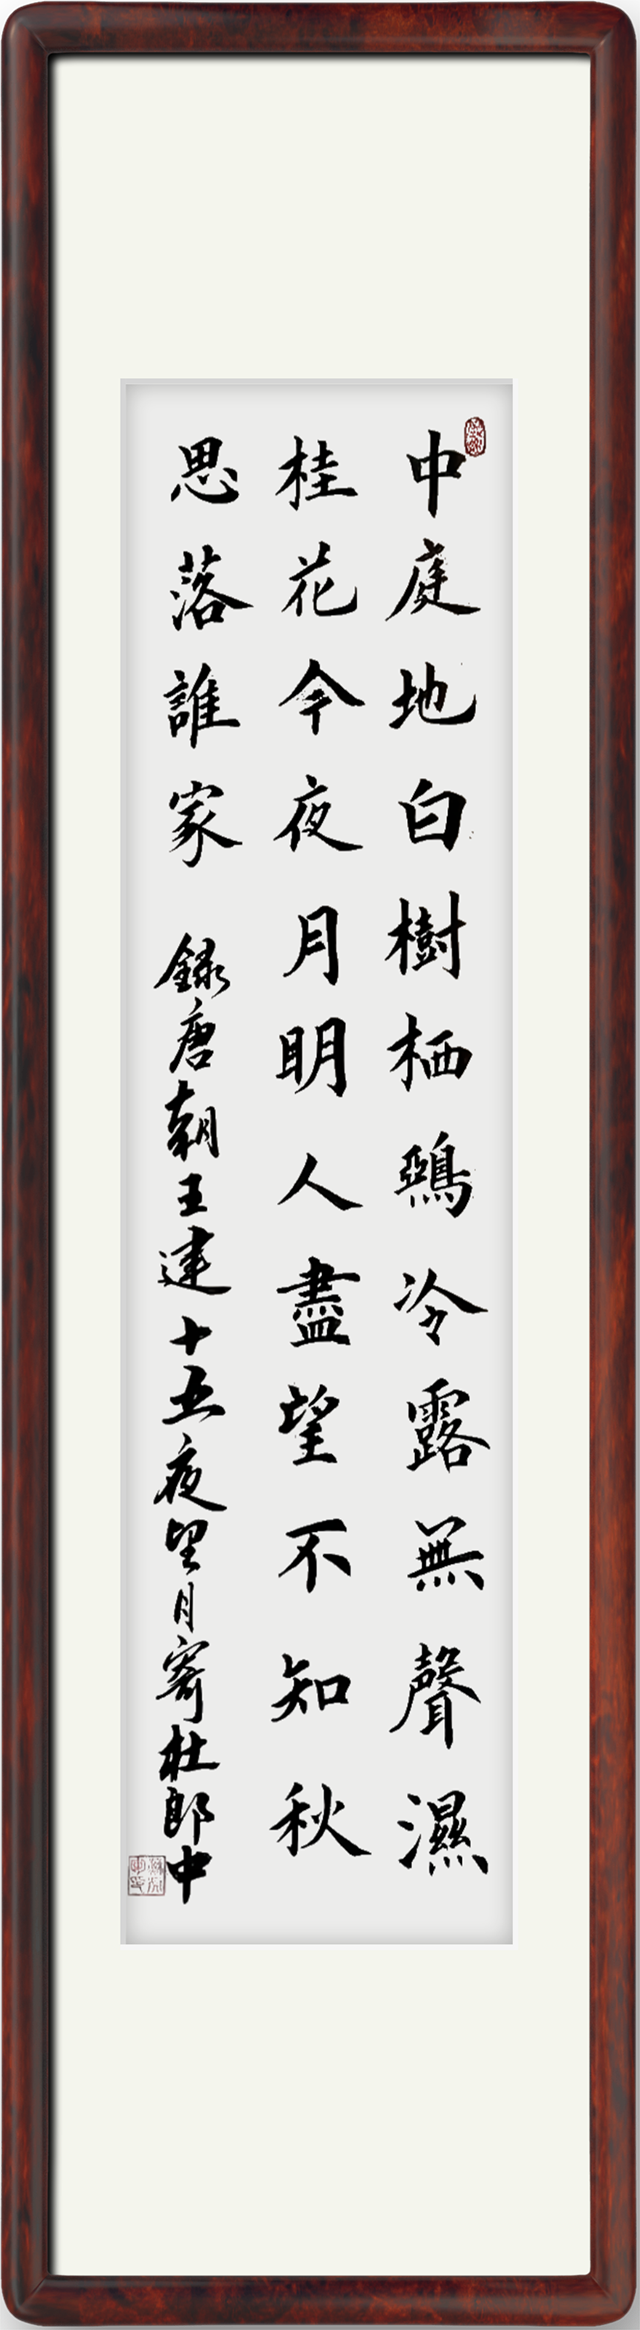 中庭地白樹栖鵶冷露無聲濕
桂花今夜月明人盡望不知秋
思落誰家 錄唐朝王建十五夜望月寄杜郎中